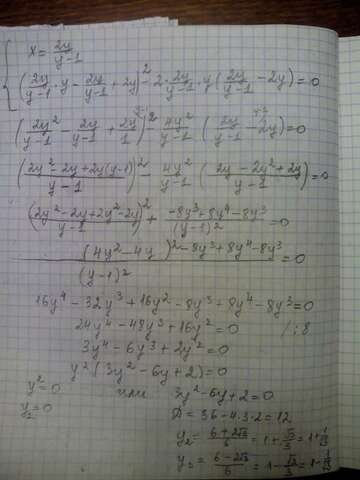 x = 2y/(y-1)
(2y/(y-1) · y - 2y/(y-1) + 2y)² - 2 · 2y/(y-1) · y (2y/(y-1) - 2y) = 0
(2y²/(y-1) - 2y/(y-1) + 2y/1)² - 4y²/(y-1) (2y/(y-1) - 2y) = 0
((2y² - 2y + 2y(y-1))/(y-1))² - 4y²/(y-1) ((2y - 2y² + 2y)/(y-1)) = 0
((2y² - 2y + 2y² - 2y)/(y-1))² + (-8y³ + 8y⁴ - 8y³)/(y-1)² = 0
((4y² - 4y)² - 8y³ + 8y⁴ - 8y³)/(y-1)² = 0
16y⁴ - 32y³ + 16y² - 8y³ + 8y⁴ - 8y³ = 0
24y⁴ - 48y³ + 16y² = 0 /:8
3y⁴ - 6y³ + 2y² = 0
y² (3y² - 6y + 2) = 0
y² = 0 или 3y² - 6y + 2 = 0
y₁ = 0 D = 36 - 4·3·2 = 12
y₂ = (6 + 2√3)/6 = 1 + √3/3 = 1 + 1/√3
y₃ = (6 - 2√3)/6 = 1 - √3/3 = 1 - 1/√3